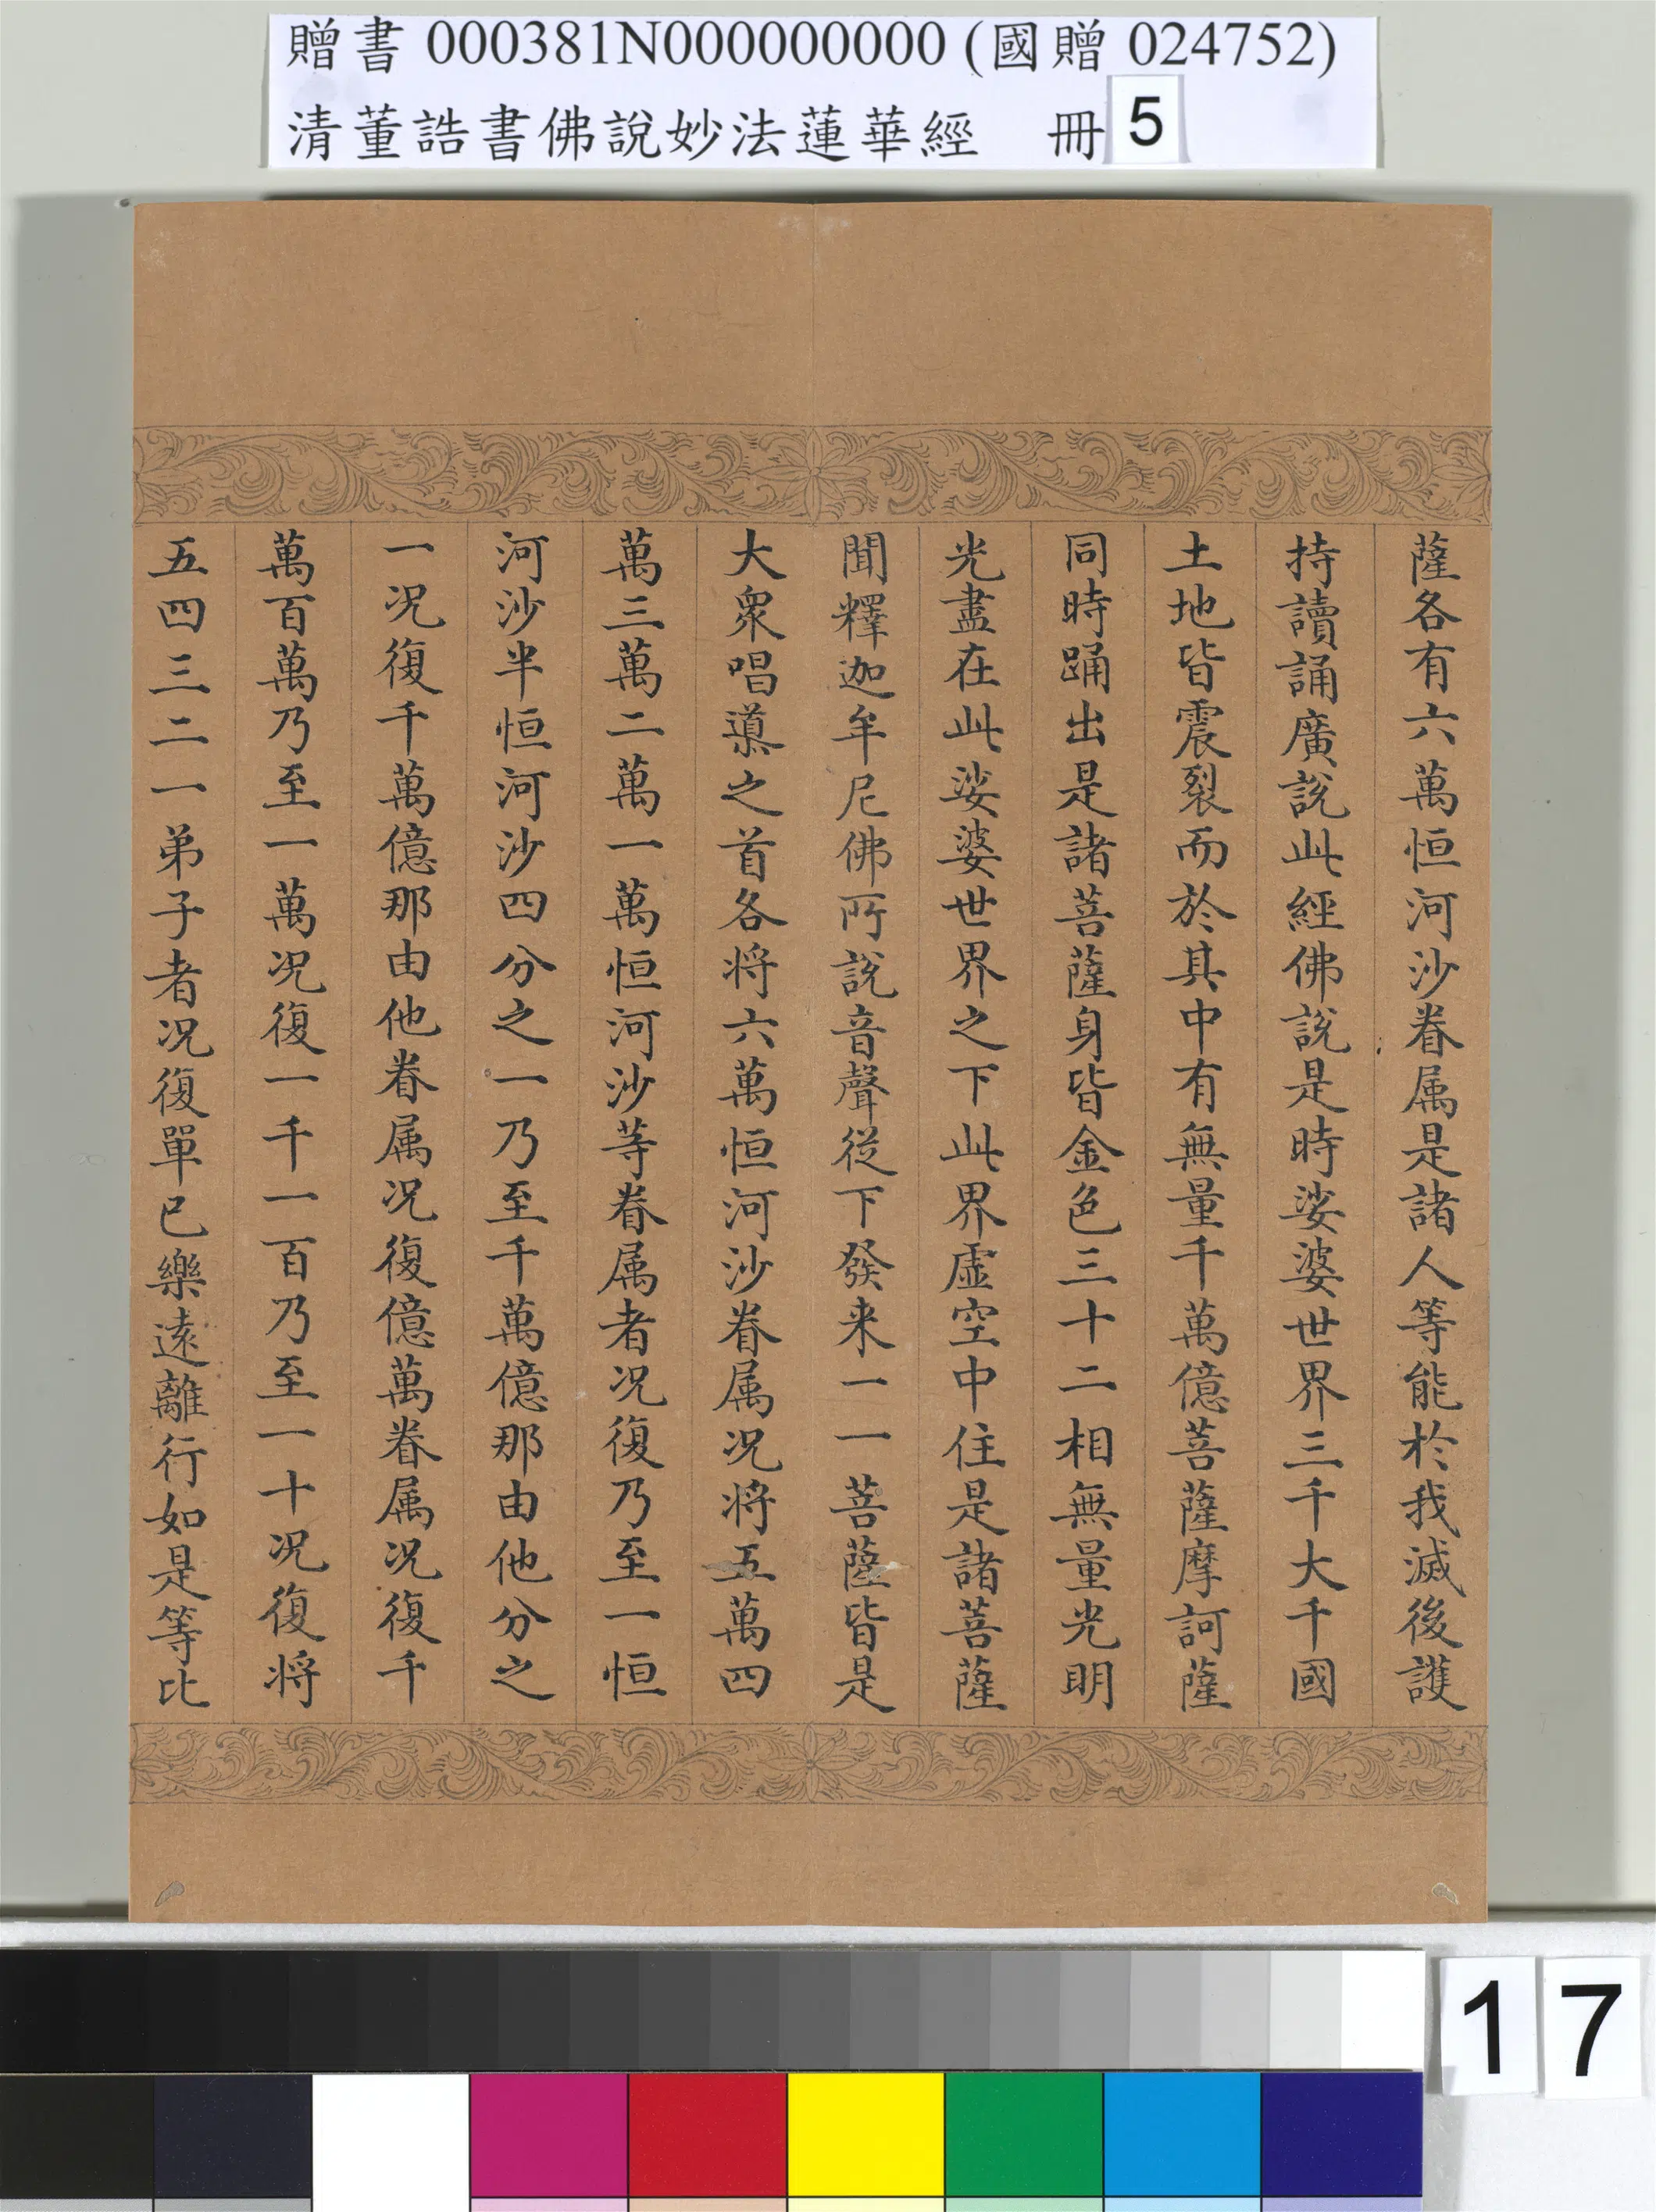 贈書 000381N000000000 (國贈 024752)
清董誥書佛說妙法蓮華經 冊 5
薩各有六萬恒河沙眷属是諸人等能於我滅後護
持讀誦廣說此經佛說是時娑婆世界三千大千國
土地皆震裂而於其中有無量千萬億菩薩摩訶薩
同時踊出是諸菩薩身皆金色三十二相無量光明
光盡在此娑婆世界之下此界虛空中住是諸菩薩
聞釋迦牟尼佛所說音聲從下發来一一菩薩皆是
大衆唱導之首各将六萬恒河沙眷属况将五萬四
萬三萬二萬一萬恒河沙等眷属者况復乃至一恒
河沙半恒河沙四分之一乃至千萬億那由他分之
一况復千萬億那由他眷属况復億萬眷属况復千
萬百萬乃至一萬况復一千一百乃至一十况復将
五四三二一弟子者况復單已樂遠離行如是等比
17